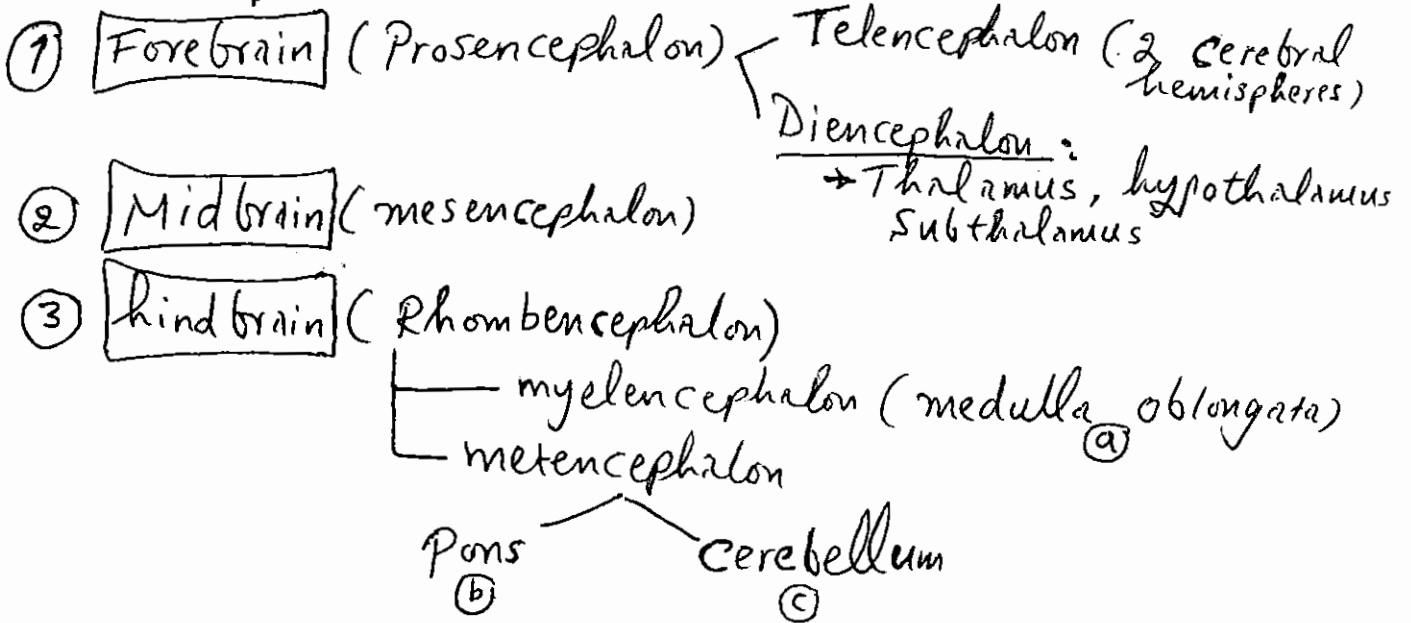 ① Forebrain (Prosencephalon) Telencephalon (2 cerebral
hemispheres)
Diencephalon:
→ Thalamus, hypothalamus
subthalamus
② Midbrain (mesencephalon)
③ hindbrain (Rhombencephalon)
myelencephalon (medulla oblongata)
ⓐ
metencephalon
Pons cerebellum
ⓑ ⓒ